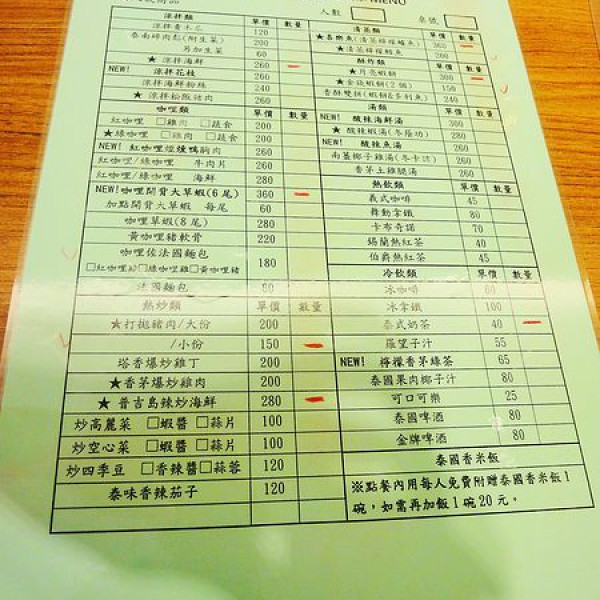 MENU
人數
桌號
涼拌類 單價 數量
涼拌青木瓜 120
泰南碎肉彭(附生菜) 200
另加生菜 60
★涼拌海鮮 260
NEW! 涼拌花枝 260
涼拌海鮮粉絲 240
★涼拌松阪豬肉 260
咖哩類 單價 數量
紅咖哩 □雞肉 □蔬食 200
★綠咖哩 □雞肉 □蔬食 200
NEW! 紅咖哩煙燻鴨胸肉 260
紅咖哩/綠咖哩 牛肉片 260
紅咖哩/綠咖哩 海鮮 280
NEW!咖哩開背大草蝦(6尾) 360
加點開背大草蝦 每尾 60
咖哩草蝦(8尾) 280
黃咖哩豬軟骨 220
咖哩佐法國麵包
□紅咖哩□綠咖哩雞□黃咖哩豬 180
法國麵包 60
熱炒類 單價 數量
★打拋豬肉/大份 200
/小份 150
塔香爆炒雞丁 200
★香茅爆炒雞肉 200
★普吉島辣炒海鮮 280
炒高麗菜 □蝦醬 □蒜片 100
炒空心菜 □蝦醬 □蒜片 100
炒四季豆 □香辣醬□蒜蓉 120
泰味香辣茄子 120
清蒸類 單價 數量
(清蒸檸檬鱸魚) 360
酥炸類 單價 數量
★月亮蝦餅 300
★金錢蝦餅(2個) 150
香酥雙拼(蝦餅&多利魚) 240
湯類 單價 數量
NEW! 酸辣海鮮湯 300
★酸辣蝦湯(冬蔭功) 280
NEW! 酸辣魚湯 260
南薑椰子雞湯(冬卡該) 260
香茅土雞腿湯 260
熱飲類 單價 數量
義式咖啡 45
舞動拿鐵 80
卡布奇諾 70
錫蘭熱紅茶 40
伯爵熱紅茶 45
冷飲類 單價 數量
冰咖啡 60
冰拿鐵 100
泰式奶茶 40
羅望子汁 55
NEW! 檸檬香茅綠茶 65
泰國果肉椰子汁 80
可口可樂 25
泰國啤酒 80
金牌啤酒 80
泰國香米飯
※點餐內用每人免費附贈泰國香米飯1
碗,如需再加飯1碗20元。